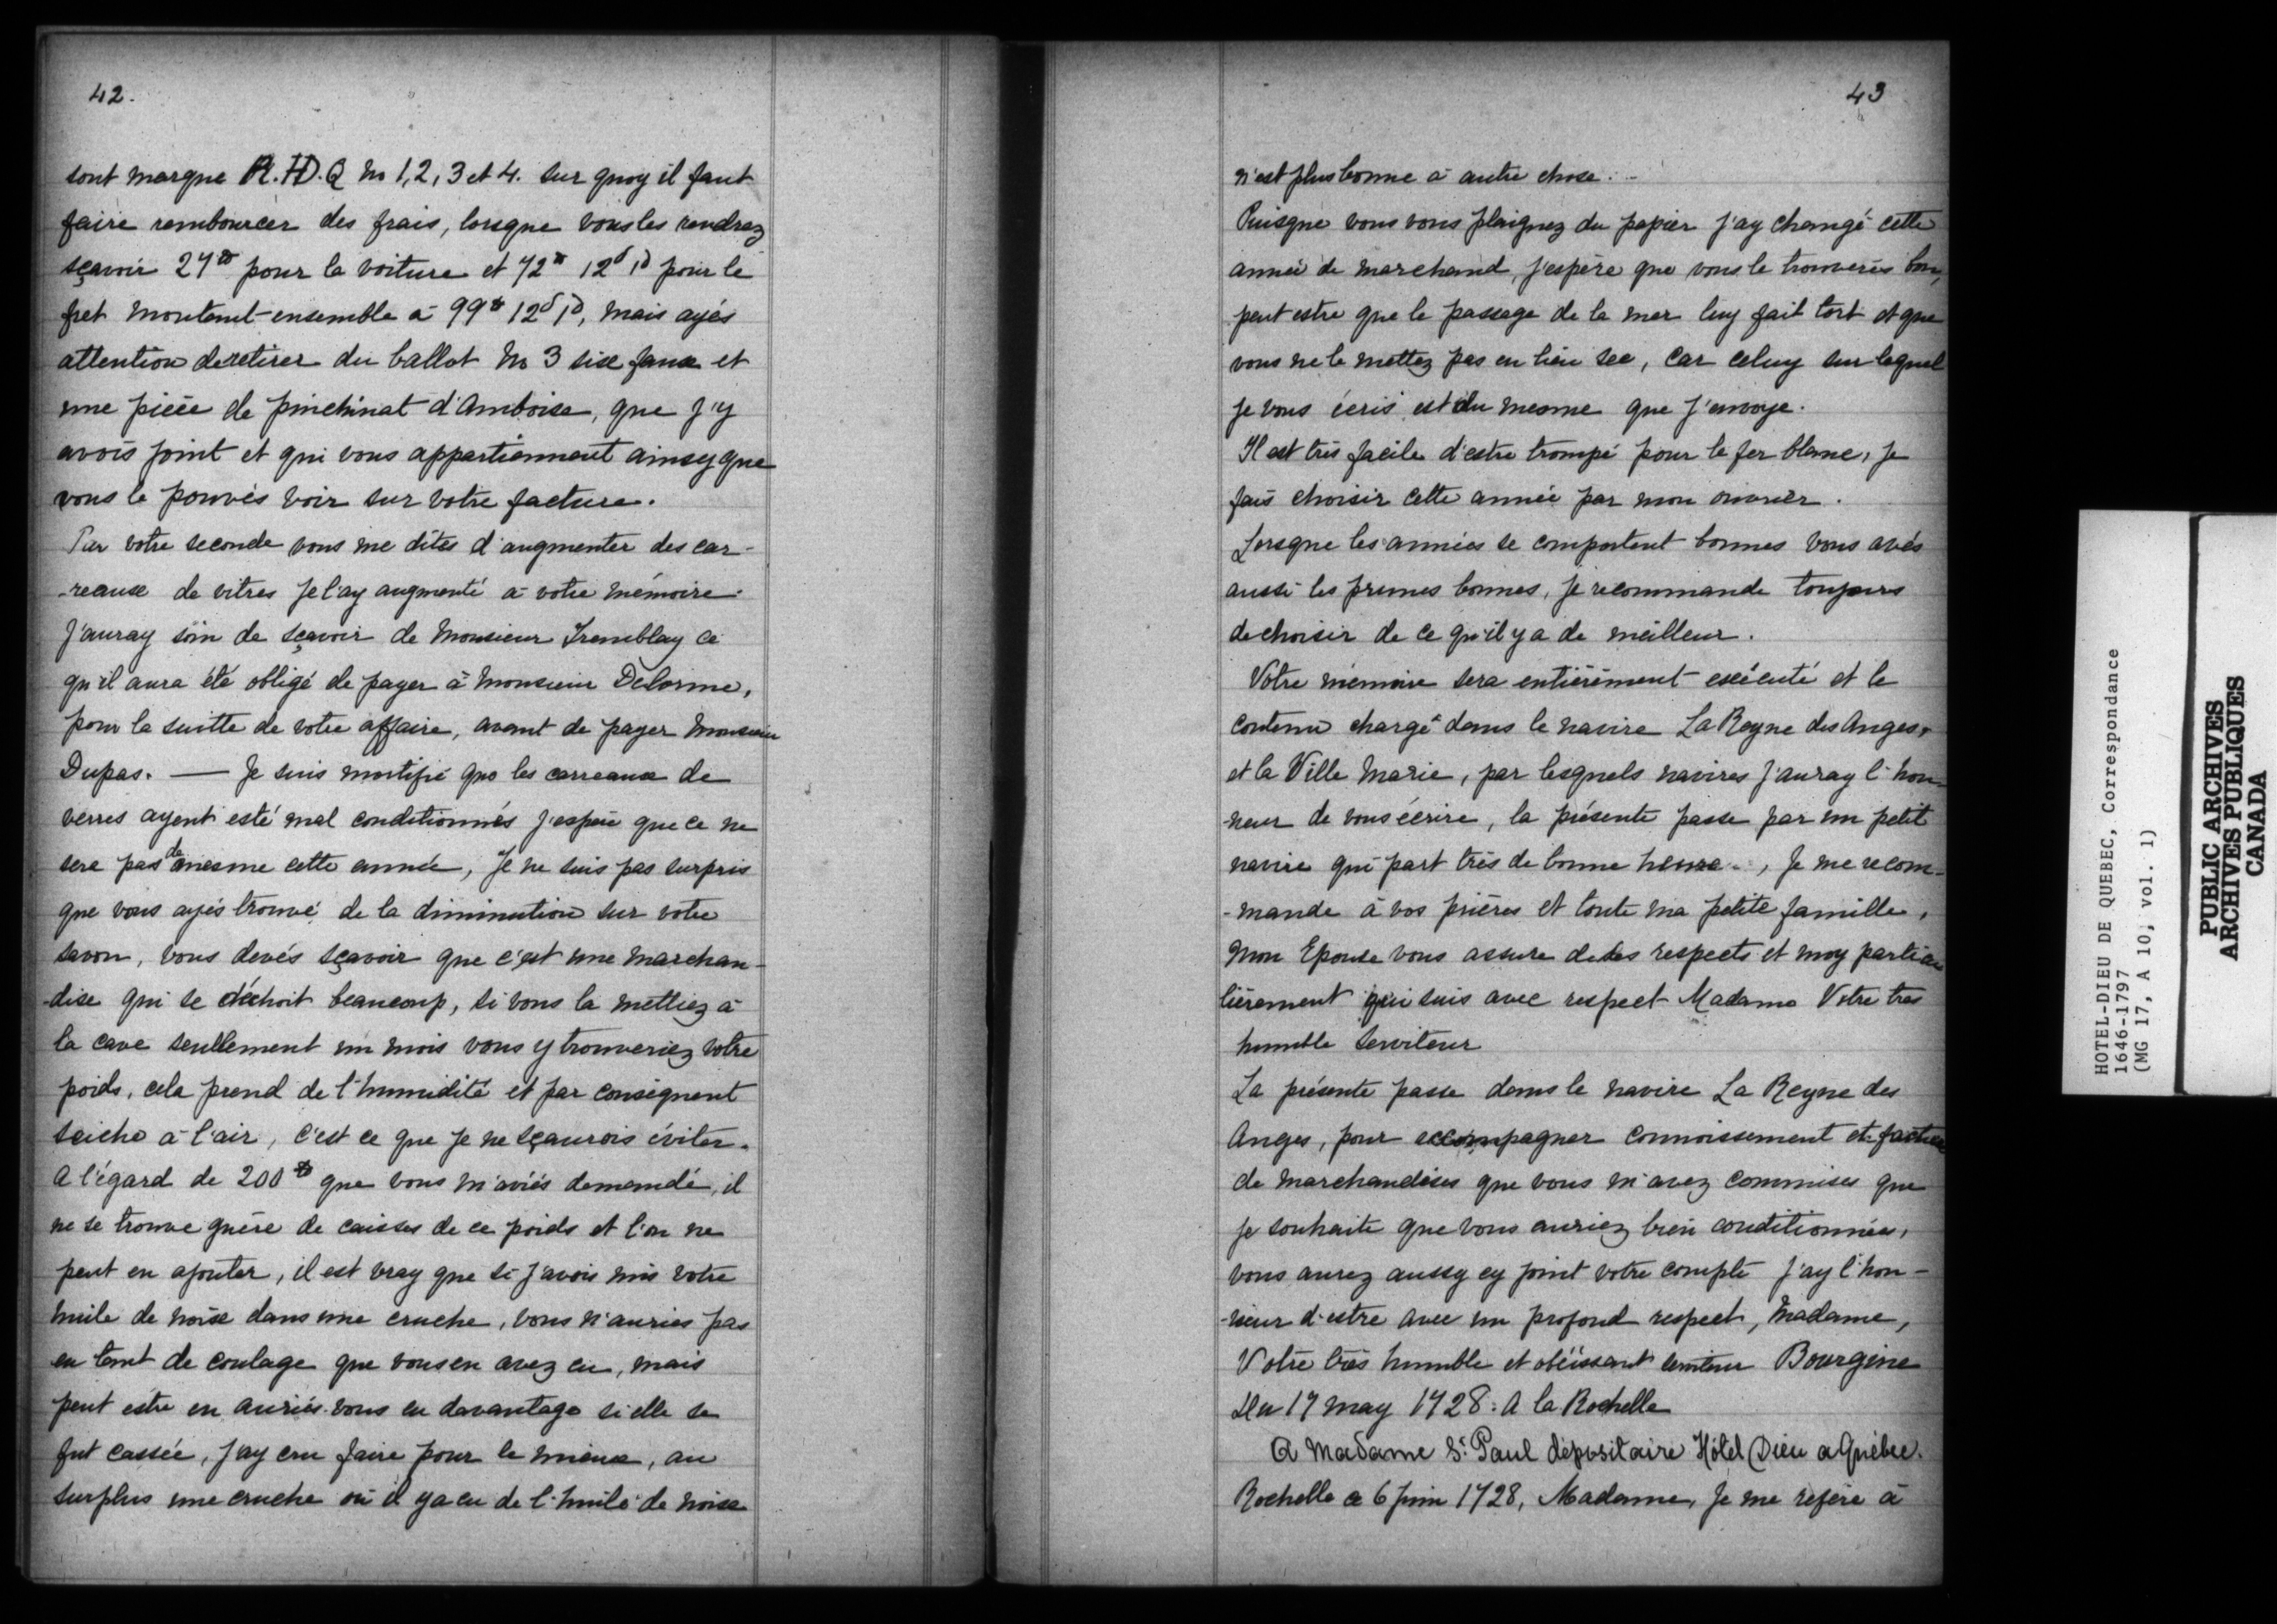 42.
sont marque R.H.D.Q no 1, 2, 3 et 4. sur quoy il faut
faire rembourcer des frais, lorsque vous les rendrez
sçavoir 27# pour la voiture et 72# 12s 1d pour le
fret montant ensemble à 99# 12s 1d, mais ayés
attention de retirer du ballot no 3 six faux et
une pièce de pinchinat d'Amboise, que j'y
avois joint et qui vous appartiennent ainsy que
vous le pouvés voir sur votre facture.
Par votre seconde vous me dites d'augmenter des car-
-reaux de vitres je l'ay augmenté à votre mémoire.
J'auray soin de sçavoir de Monsieur Tremblay ce
qu'il aura été obligé de payer à Monsieur Delorme,
pour la suitte de votre affaire, avant de payer Monsieur
Dupas. — Je suis mortifié que les carreaux de
verres ayent esté mal conditionnés j'espère que ce ne
sera pas de mesme cette année, Je ne suis pas surpris
que vous ayés trouvé de la diminution sur votre
savon, vous devés sçavoir que c'est une marchan-
-dise qui se déchoit beaucoup, si vous la mettiez à
la cave seullement un mois vous y trouveriez votre
poids, cela prend de l'humidité et par conséquent
seiche à l'air, c'est ce que je ne sçaurois éviter.
A l'égard de 200# que vous m'aviés demandé, il
ne se trouve guère de caisses de ce poids et l'on ne
peut en ajouter, il est vray que si j'avois mis votre
huile de noix dans une cruche, vous n'auries pas
eu tant de coulage que vous en avez eu, mais
peut estre en auriés-vous eu davantage si elle se
fut cassée, j'ay cru faire pour le mieux, au
surplus une cruche où il y a eu de l'huile de noix
43
n'est plus bonne à autre chose.
Puisque vous vous plaignez du papier j'ay changé cette
année de marchand, j'espère que vous le trouverés bon,
peut estre que le passage de la mer luy fait tort et que
vous ne le mettez pas en lieu sec, car celuy sur lequel
je vous écris est du mesme que j'envoye.
Il est très facile d'estre trompé pour le fer blanc, je
fais choisir cette année par mon ouvrier.
Lorsque les années se comportent bonnes vous avés
aussi les prunes bonnes, je recommande toujours
de choisir de ce qu'il y a de meilleur.
Votre mémoire sera entièrement exécuté et le
contenu chargé dans le navire La Reyne des Anges,
et la Ville Marie, par lesquels navires j'auray l'hon-
-neur de vous écrire, la présente passe par un petit
navire qui part très de bonne heure, Je me recom-
-mande à vos prières et toute ma petite famille,
Mon Epouse vous assure de ses respects et moy particu
lièrement qui suis avec respect Madame Votre tres
humble serviteur
La présente passe dans le navire La Reyne des
Anges, pour accompagner connoissement et facture
de marchandises que vous m'avez commises que
je souhaite que vous auriez bien conditionnées,
vous aurez aussy cy joint votre compte j'ay l'hon-
-neur d'estre avec un profond respect, Madame,
Votre très humble et obéissant serviteur Bourgine
Du 17 may 1728. A la Rochelle
A Madame St Paul dépositaire Hôtel Dieu a Québec.
Rochelle ce 6 juin 1728, Madame, je me refere à
HOTEL-DIEU DE QUEBEC, Correspondance
1646-1797
(MG 17, A 10, vol. 1)
PUBLIC ARCHIVES
ARCHIVES PUBLIQUES
CANADA